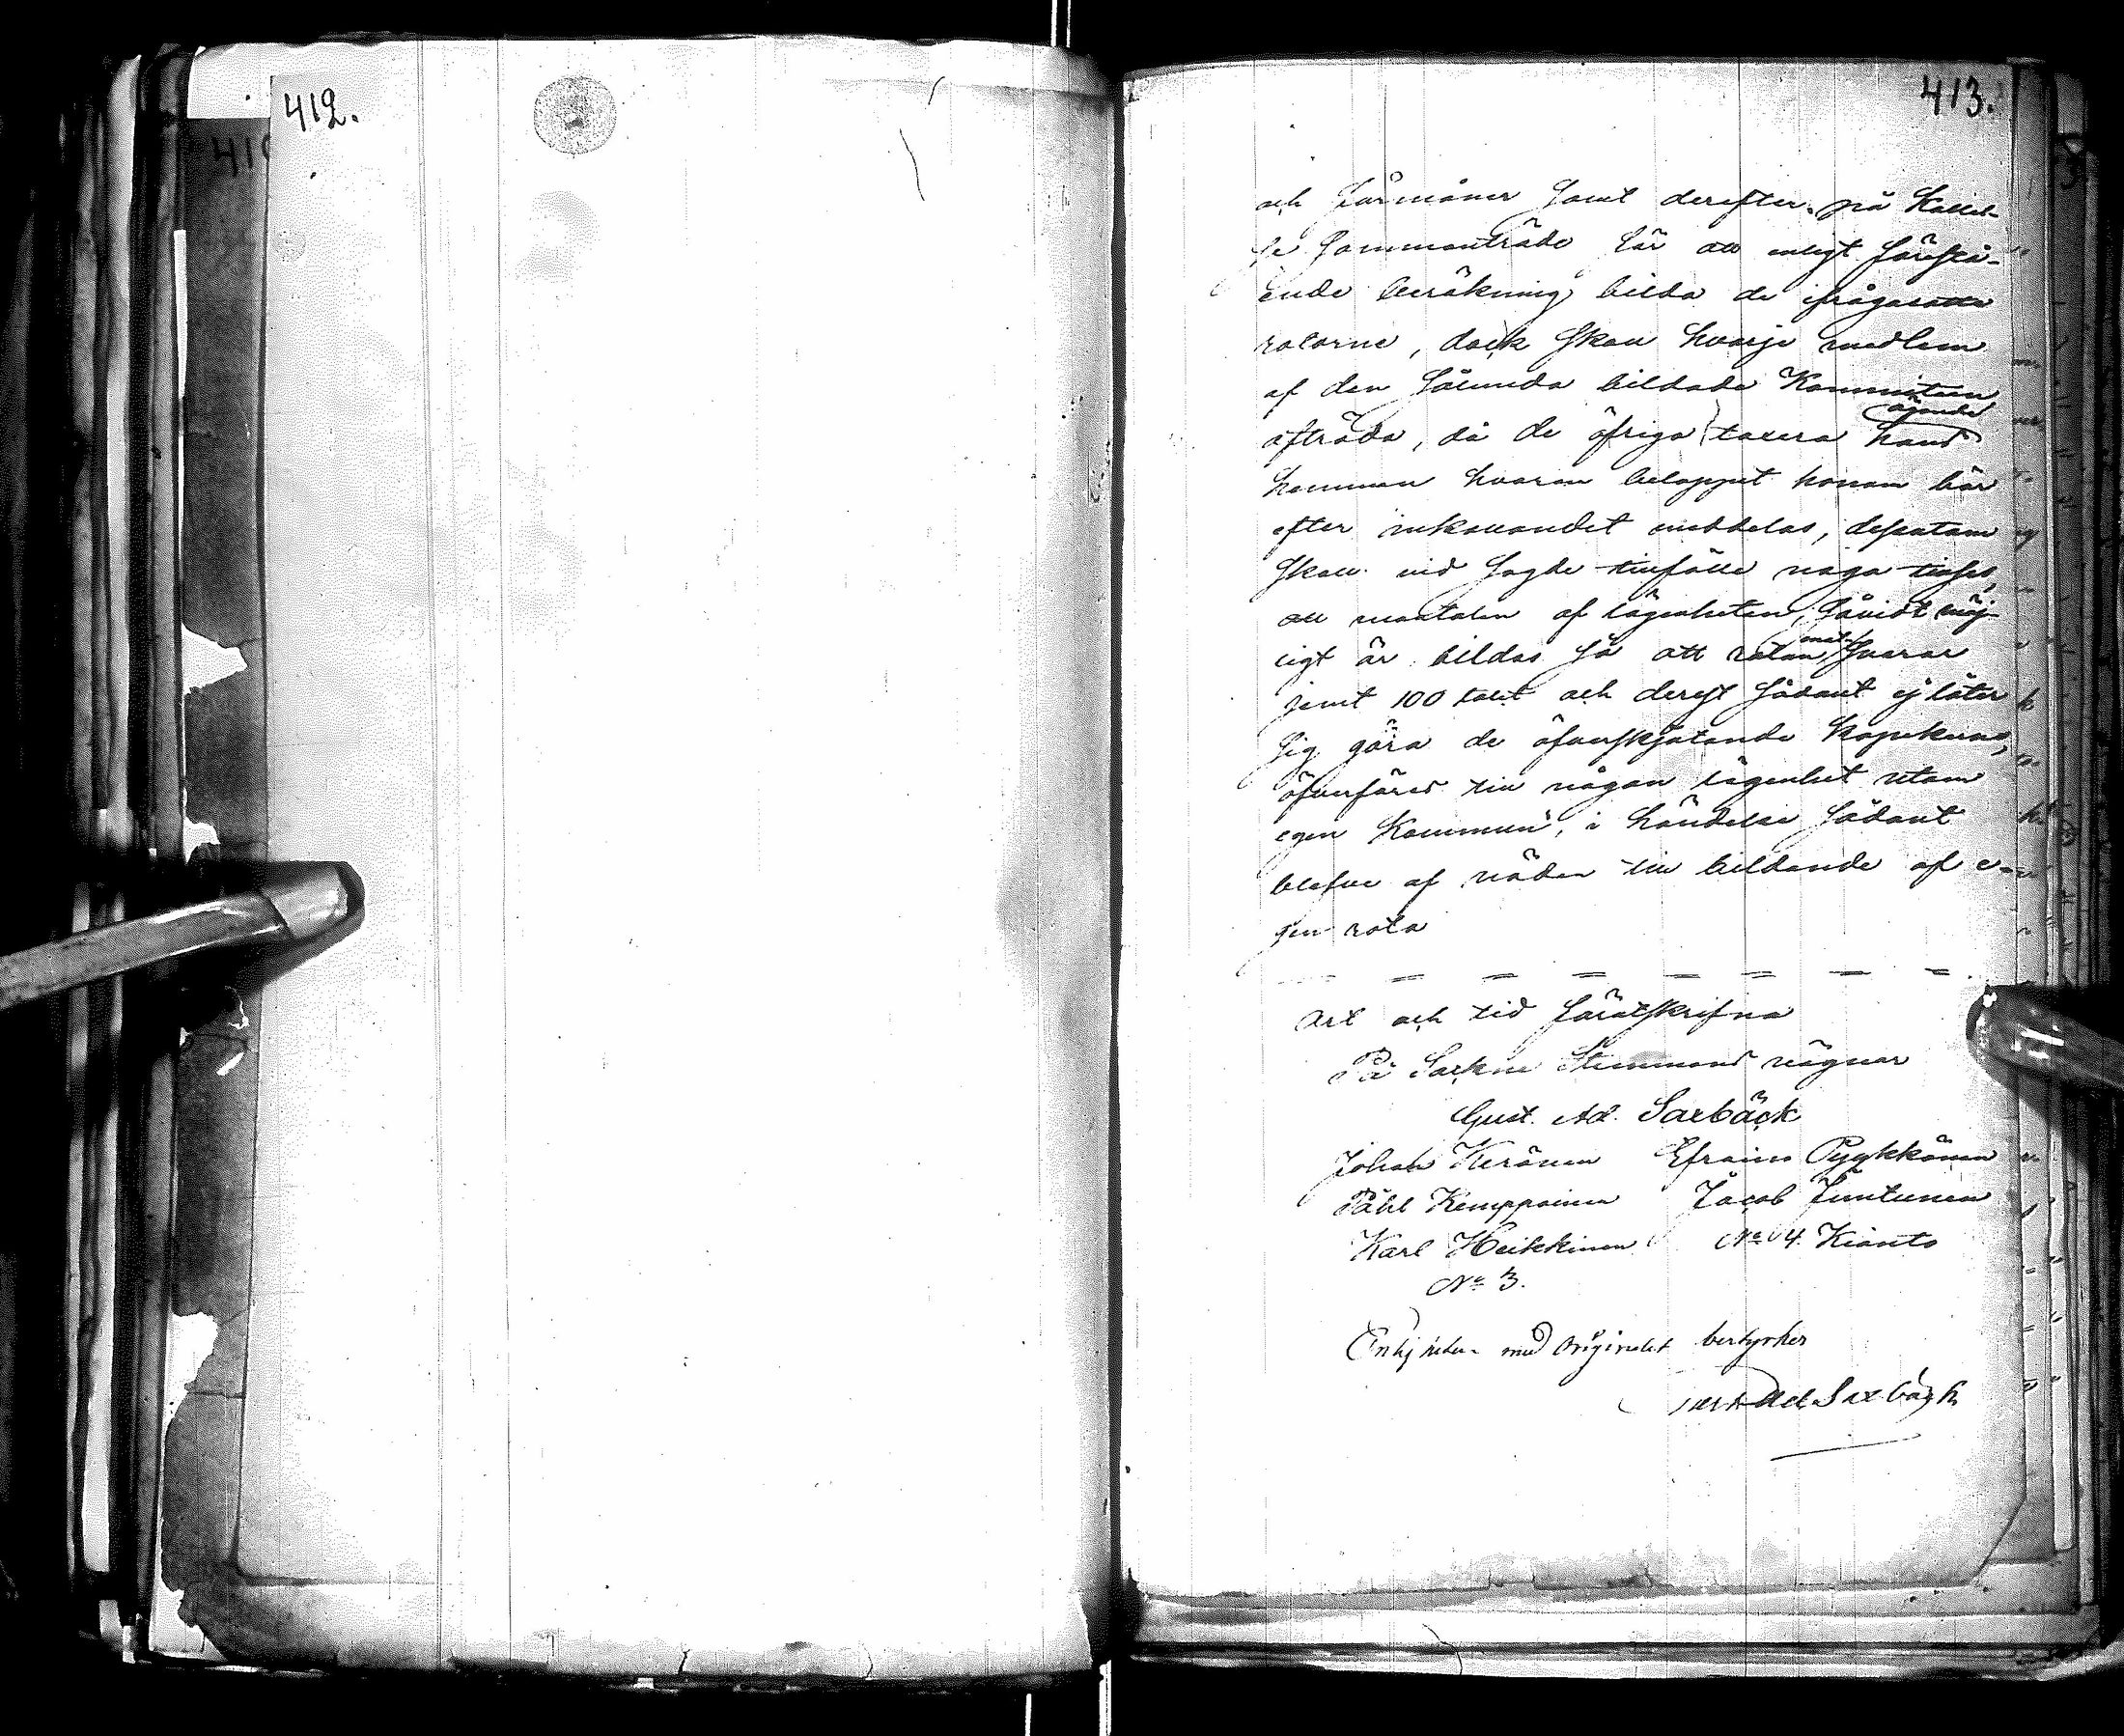 412.
413.
och förmåner samt derefter på Kallel-
se sammanträde för att enligt förestå-
ende beräkning bilda de ifrågasatta
rotarne, dock skall hvarje medlem
af den sålunda bildade Kommiteen
afträda, då de öfriga taxera hans
ägande
hemman hvaraf beloppet honom bör
efter inkallandet meddelas, dessutom
skall vid sagde tillfälle noga tillses,
att mantalen af lägenheten, såvidt möj-
ligt är bildas så att rotan mot- svarar
jemt 100 talet och derest sådant ej låter
sig göra de öfverskjutande kopekerna,
öfverföres till någon lägenhet utom
egen Kommun, i händelse sådant
blefve af nöden till bildande af e-
gen rota
Ort och tid förutskrifna
På Sockne Stemmans vägnar
Gust. Ad. Saxbäck
Johan Keränen Efraim Pyykkönen
Påhl Kemppainen Jacob Juntunen
Karl Heikkinen No 4 Kianto
No 3.
med Originalet bestyrker
Ad. Saxbäck